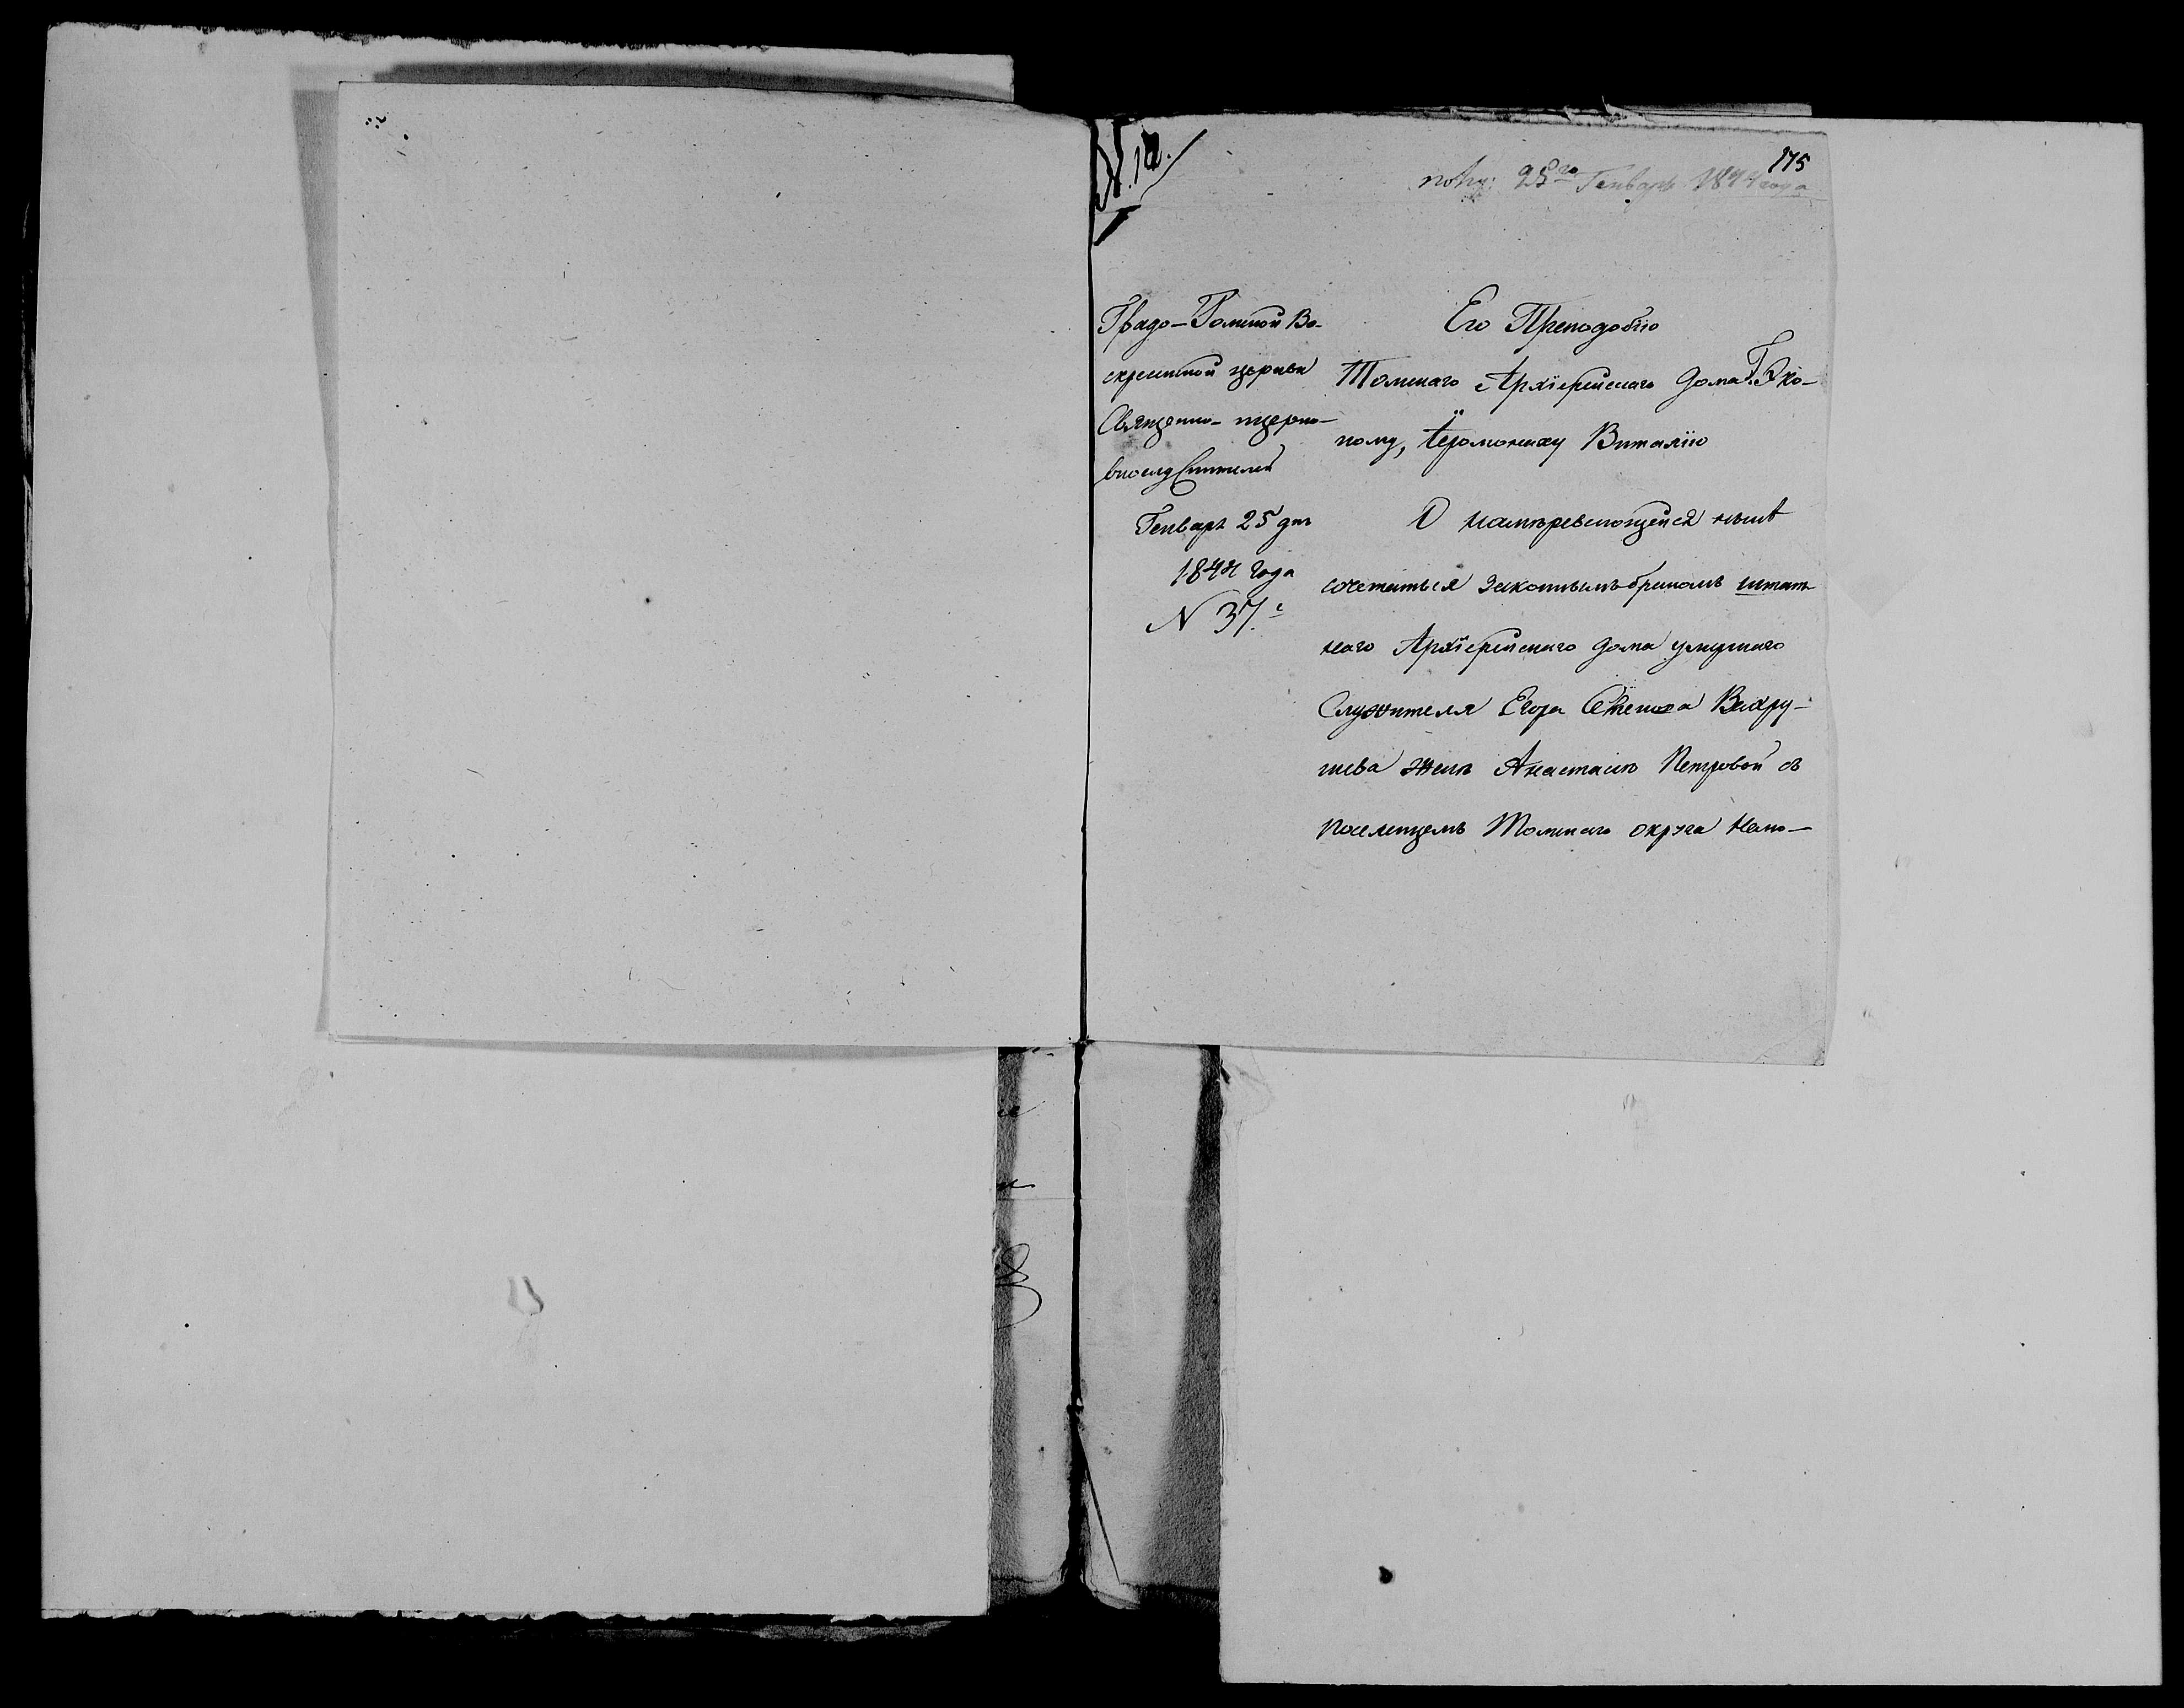 175
полу: 25го Генваря 1844 года
Градо-Томской Во-
скресенской церкви
Священно- нцерко-
внослужителей
Генваря 25 дня
1844 года
N 37.
Его Преподобію
Томскаго Архіерейскаго дома Г. Эко-
ному, Іеромонаху Виталію
О намѣревающейся нынѣ
сочетаться законнымъ бракомъ штат-
наго Архіерейскаго дома умершаго
Служителя Егора Вахру-
шева женѣ Анастасіи Петровой съ
поселенцемъ Томскаго округа Нелю-